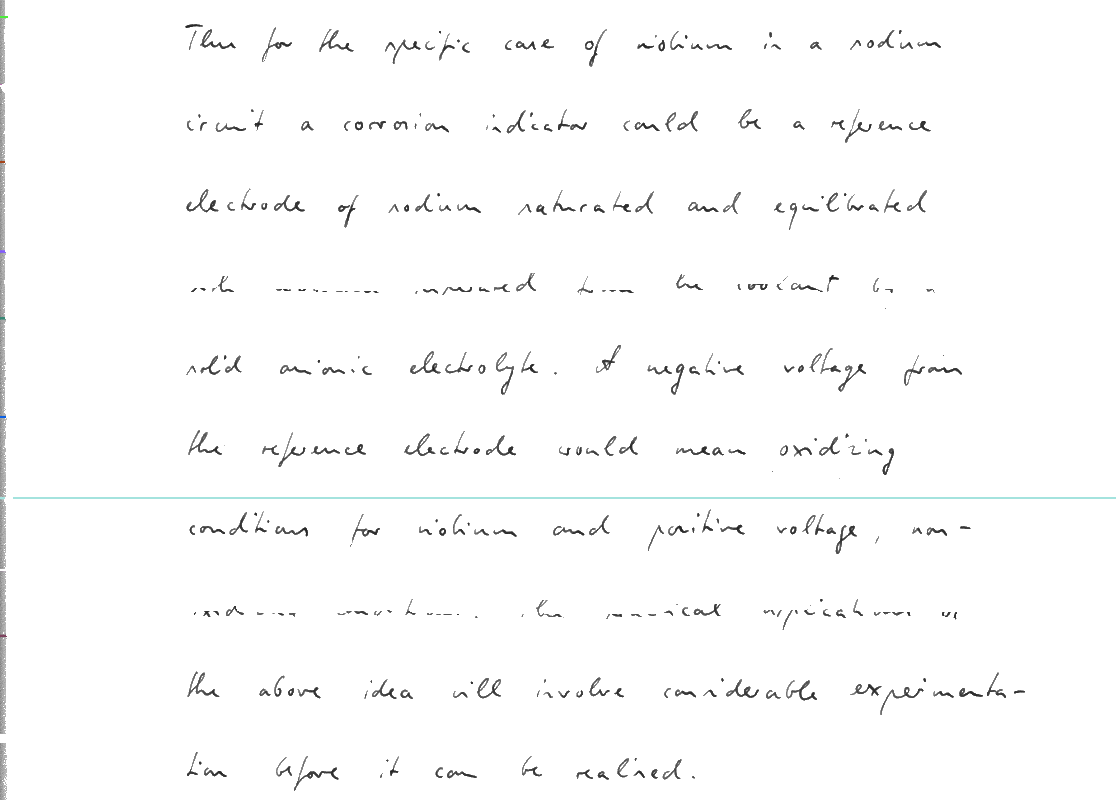 Thus for the specific case of niobium in a sodium
circuit a corrosion indicator could be a reference
electrode of sodium saturated and equilibrated
with the coolant by a
solid anionic electrolyte. A negative voltage from
the reference electrode would mean oxidizing
conditions for niobium and positive voltage, non-
the
the above idea will involve considerable experimenta-
tion before it can be realised.